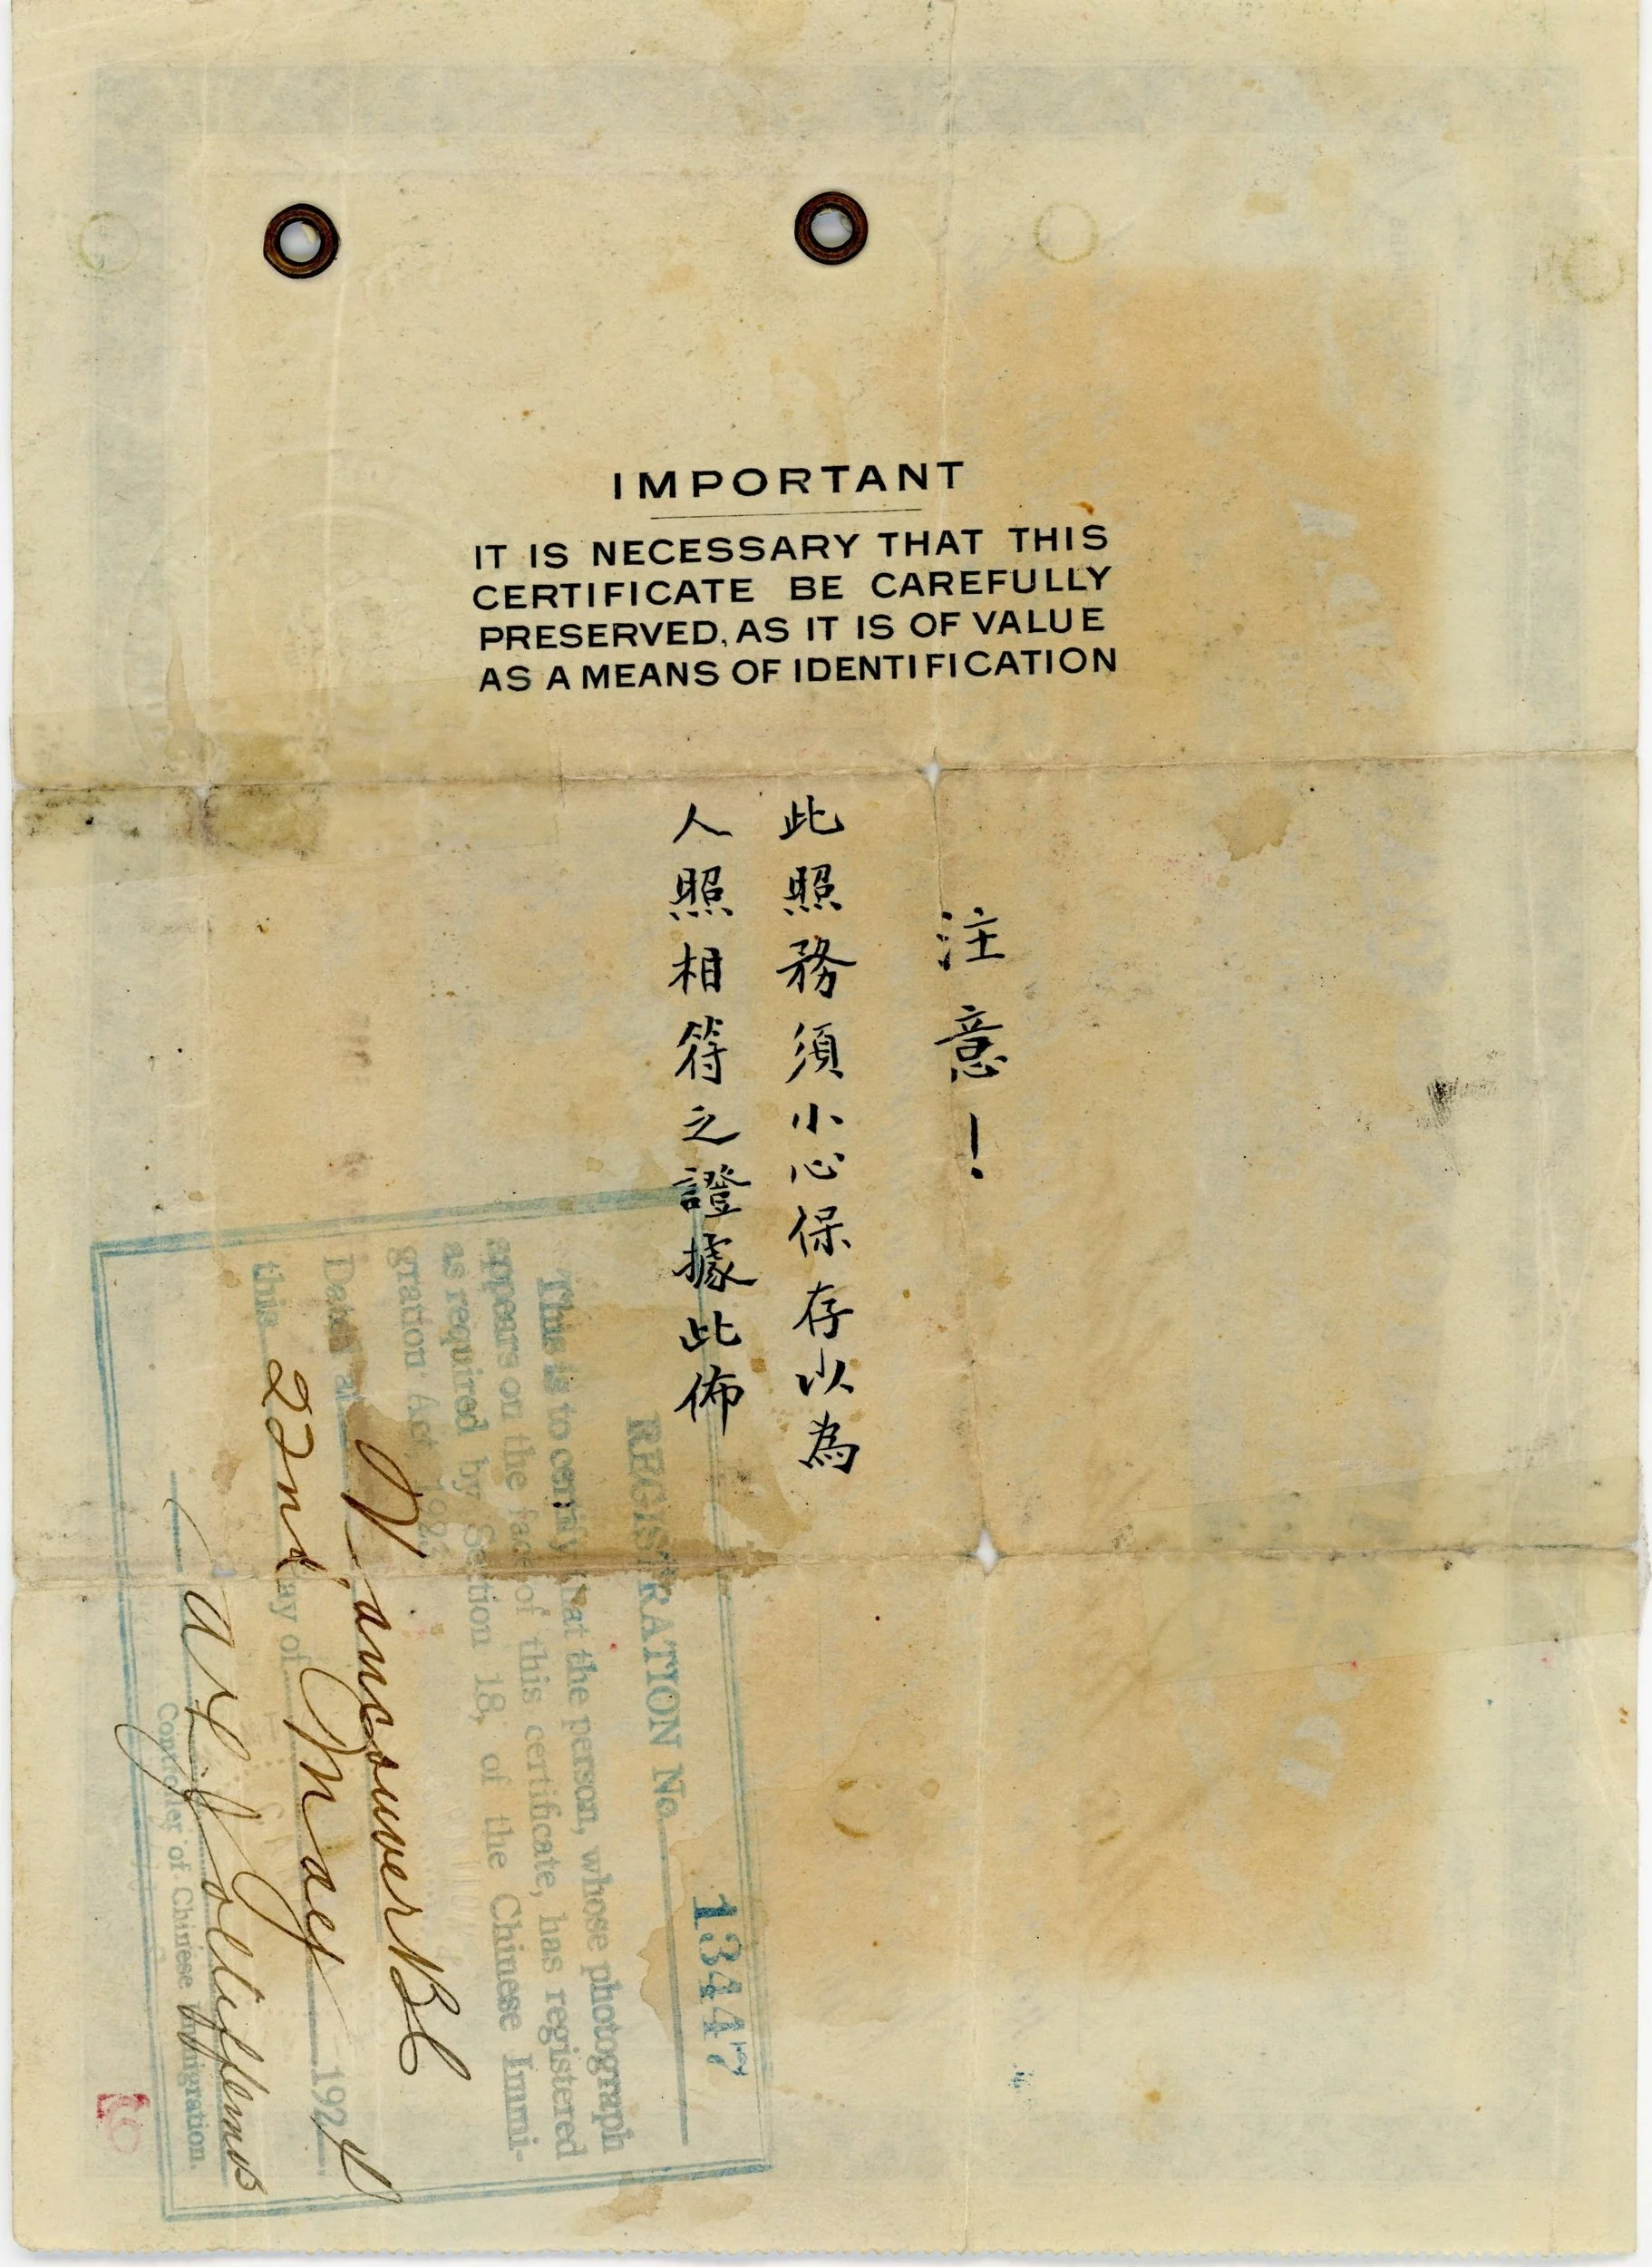 IMPORTANT
IT IS NECESSARY THAT THIS
CERTIFICATE BE CAREFULLY
PRESERVED, AS IT IS OF VALUE
AS A MEANS OF IDENTIFICATION
注意！
此照務須小心保存以為
人照相符之證據此佈
13447
REGISTRATION No.
This is to certify that the person, whose photograph
appears on the face of this certificate, has registered
as required by Section 18, of the Chinese Immi-
gration Act 1923
Dated at Vancouver BC
this 22nd day of May 1924
Controller of Chinese Immigration.